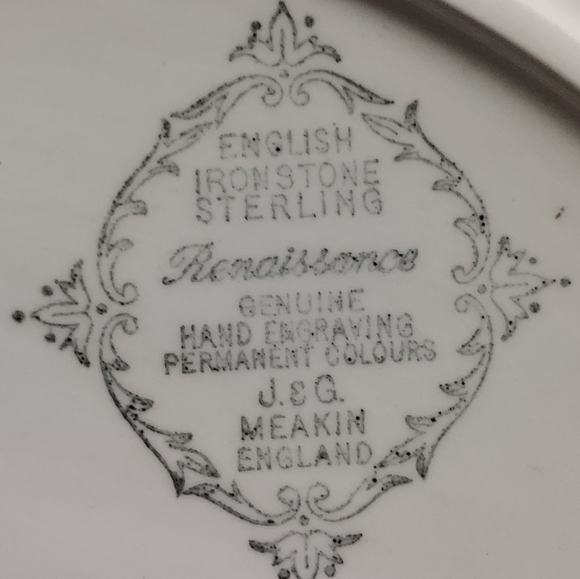 ENGLISH
IRONSTONE
STERLING
Renaissance
GENUINE
HAND ENGRAVING
PERMANENT COLOURS
J. & G.
MEAKIN
ENGLAND